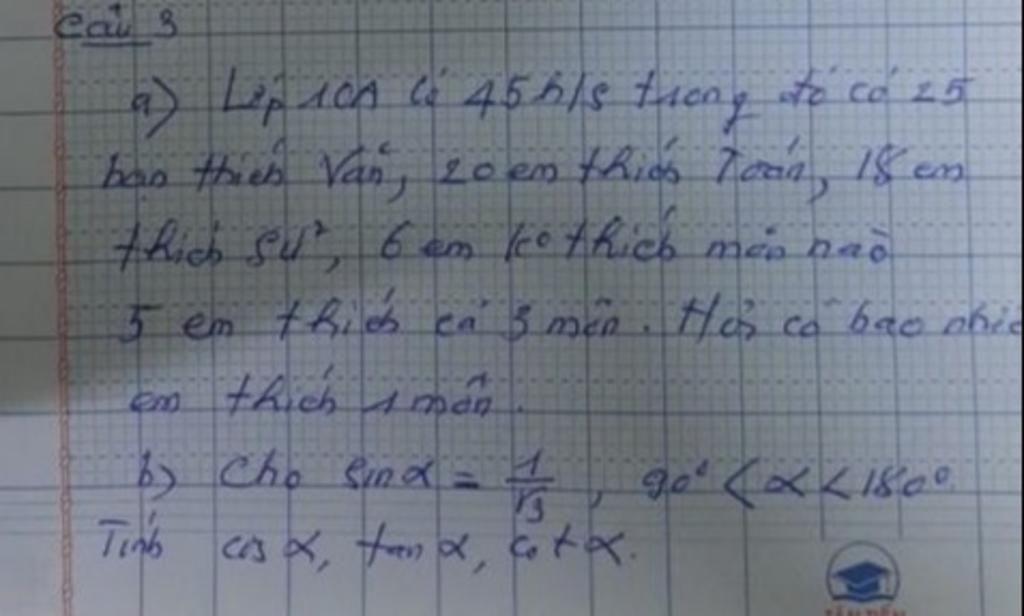 Câu 3
a) Lớp 10A có 45 h/s trong đó có 25
bạn thích Văn, 20 em thích Toán, 18 em
thích Sử, 6 em ko thích môn nào
5 em thích cả 3 môn. Hỏi có bao nhiê
em thích 1 môn.
b) Cho sin α = 1/√3, 90° < α < 180°.
Tính cos α, tan α, cot α.